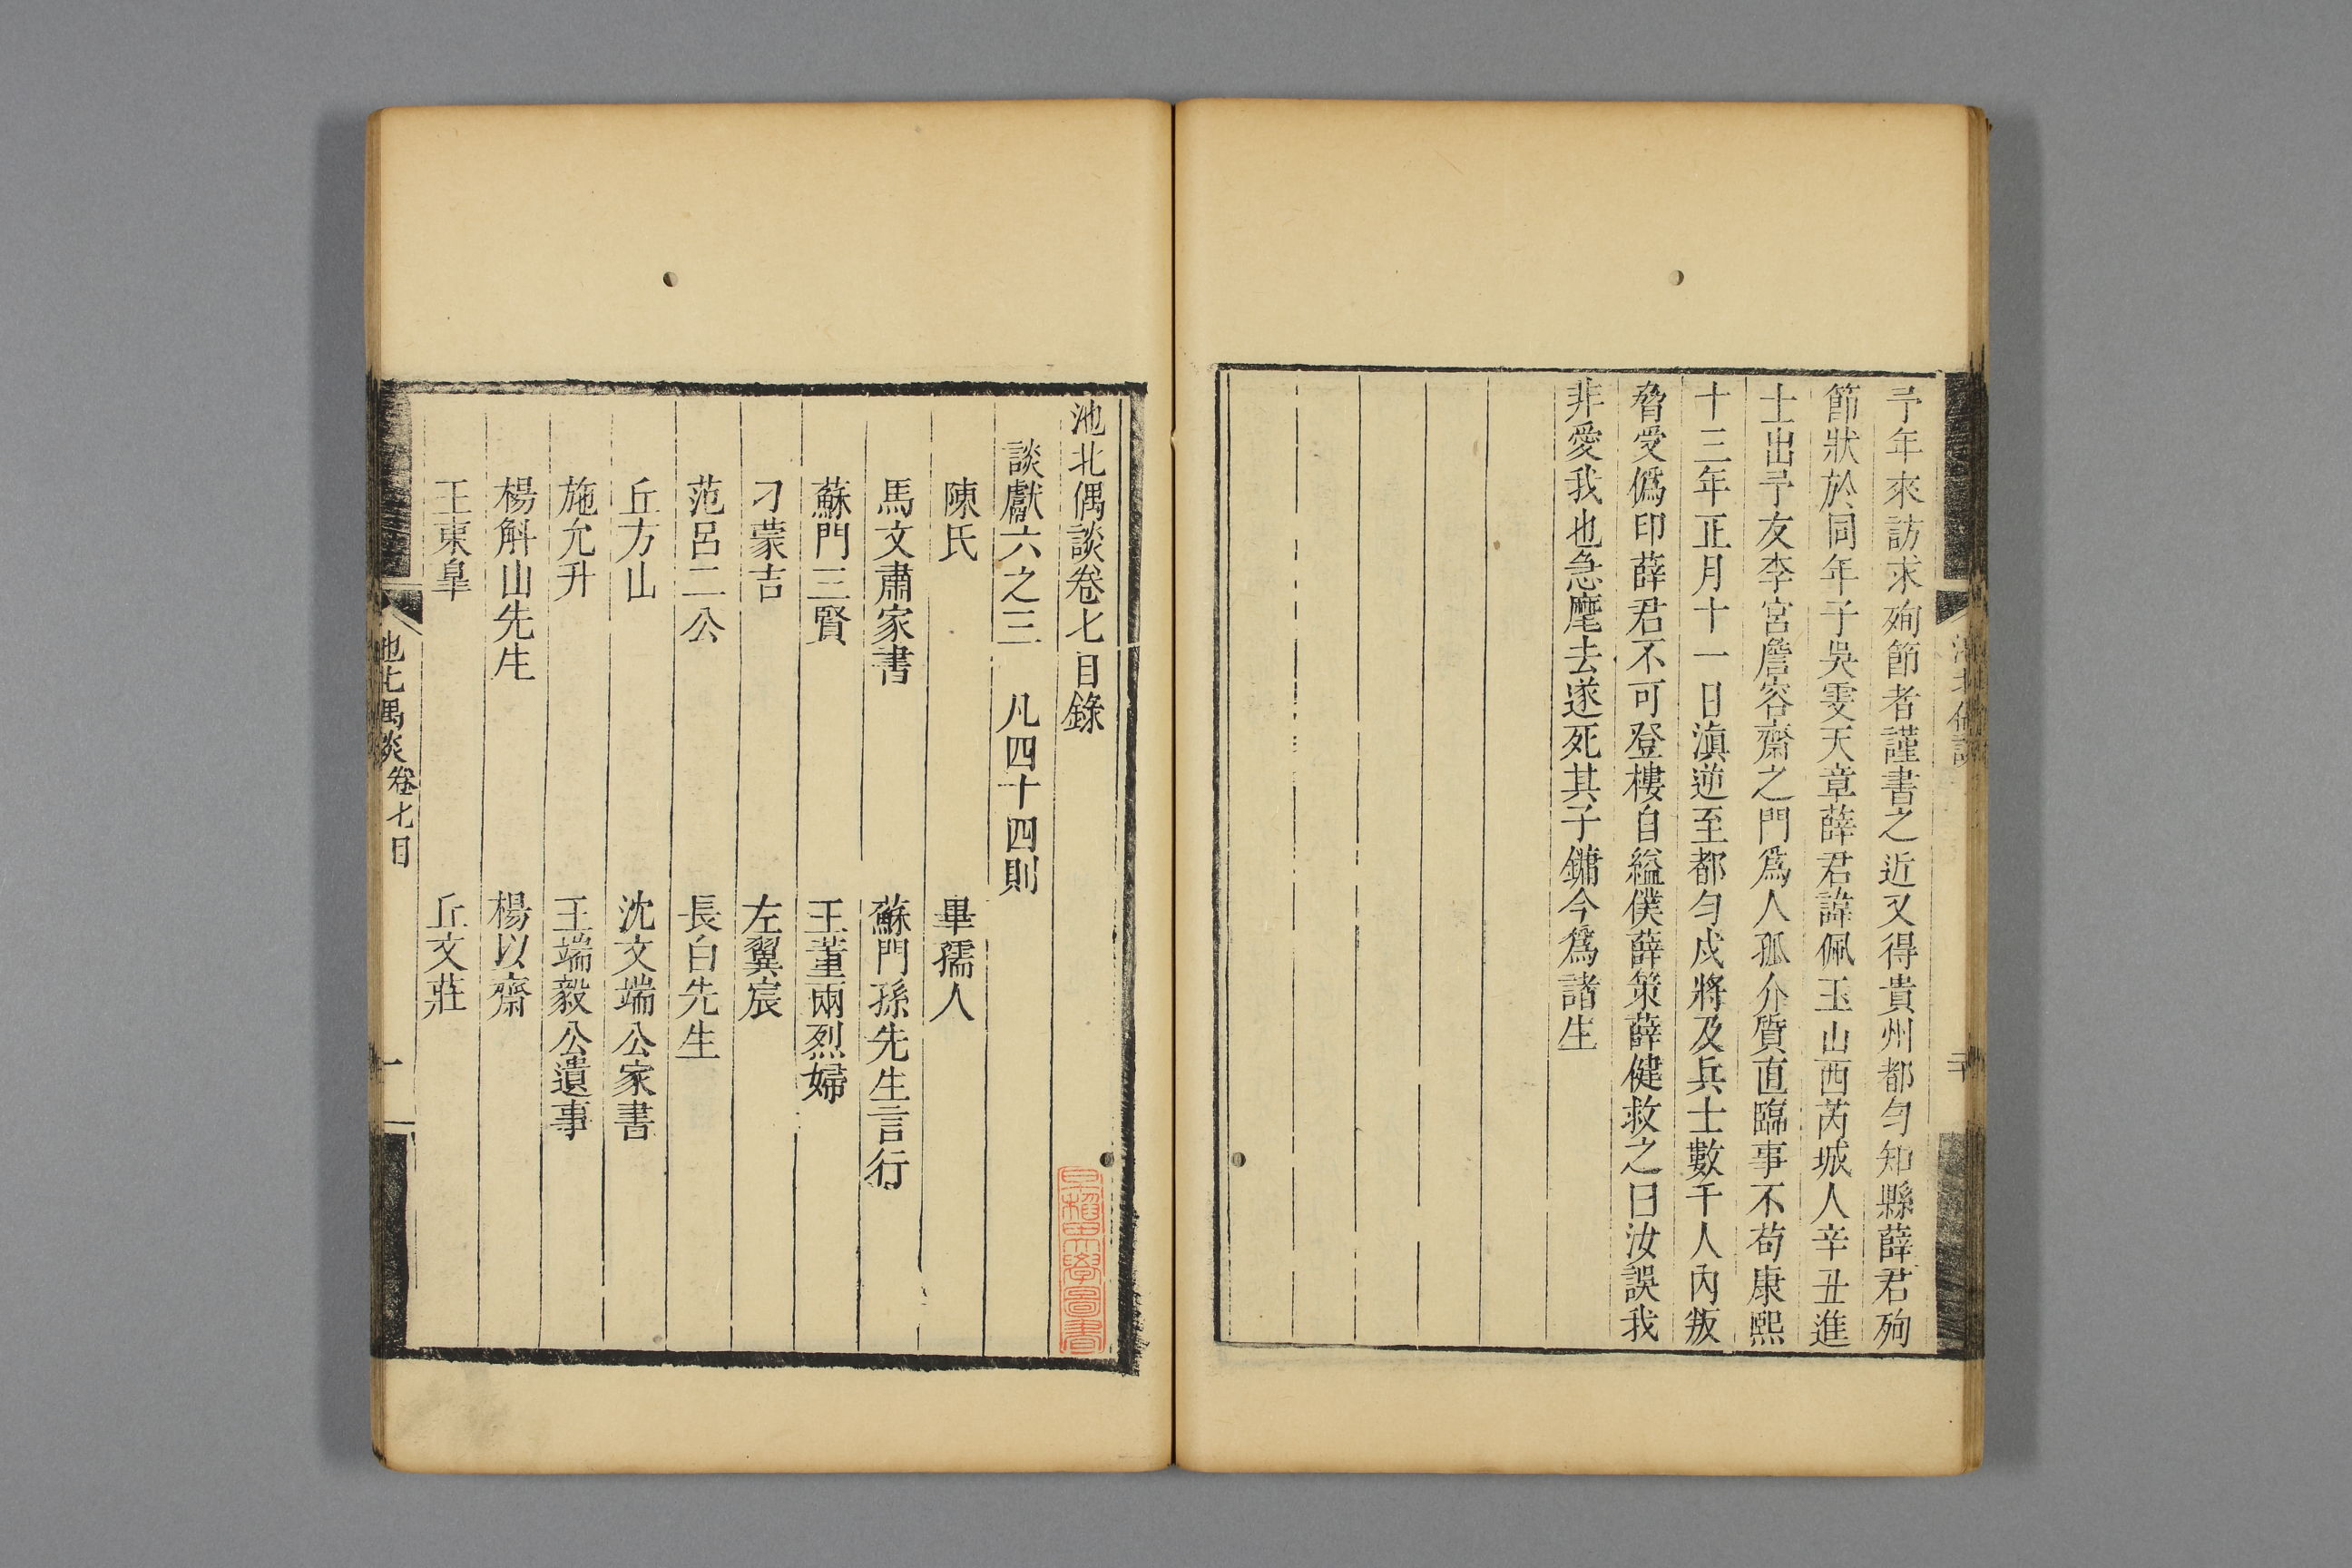 予年來訪求殉節者謹書之近又得貴州都勻知縣薛君殉
節狀於同年子吳雯天章薛君諱佩玉山西芮城人辛丑進
士出予友李宮詹容齋之門爲人孤介質直臨事不苟康熙
十三年正月十一日滇逆至都勻戍將及兵士數千人內叛
脅受僞印薛君不可登樓自縊僕薛策薛健救之曰汝誤我
非愛我也急麾去遂死其子鏞今爲諸生
池北偶談卷七目錄
談獻六之三 凡四十四則
陳氏 畢孺人
馬文肅家書 蘇門孫先生言行
蘇門三賢 王董兩烈婦
刁蒙吉 左翼宸
范呂二公 長白先生
丘方山 沈文端公家書
施允升 王端毅公遺事
楊斛山先生 楊以齋
王東皐 丘文莊
池北偶談 卷七目 一
早稻田大學圖書